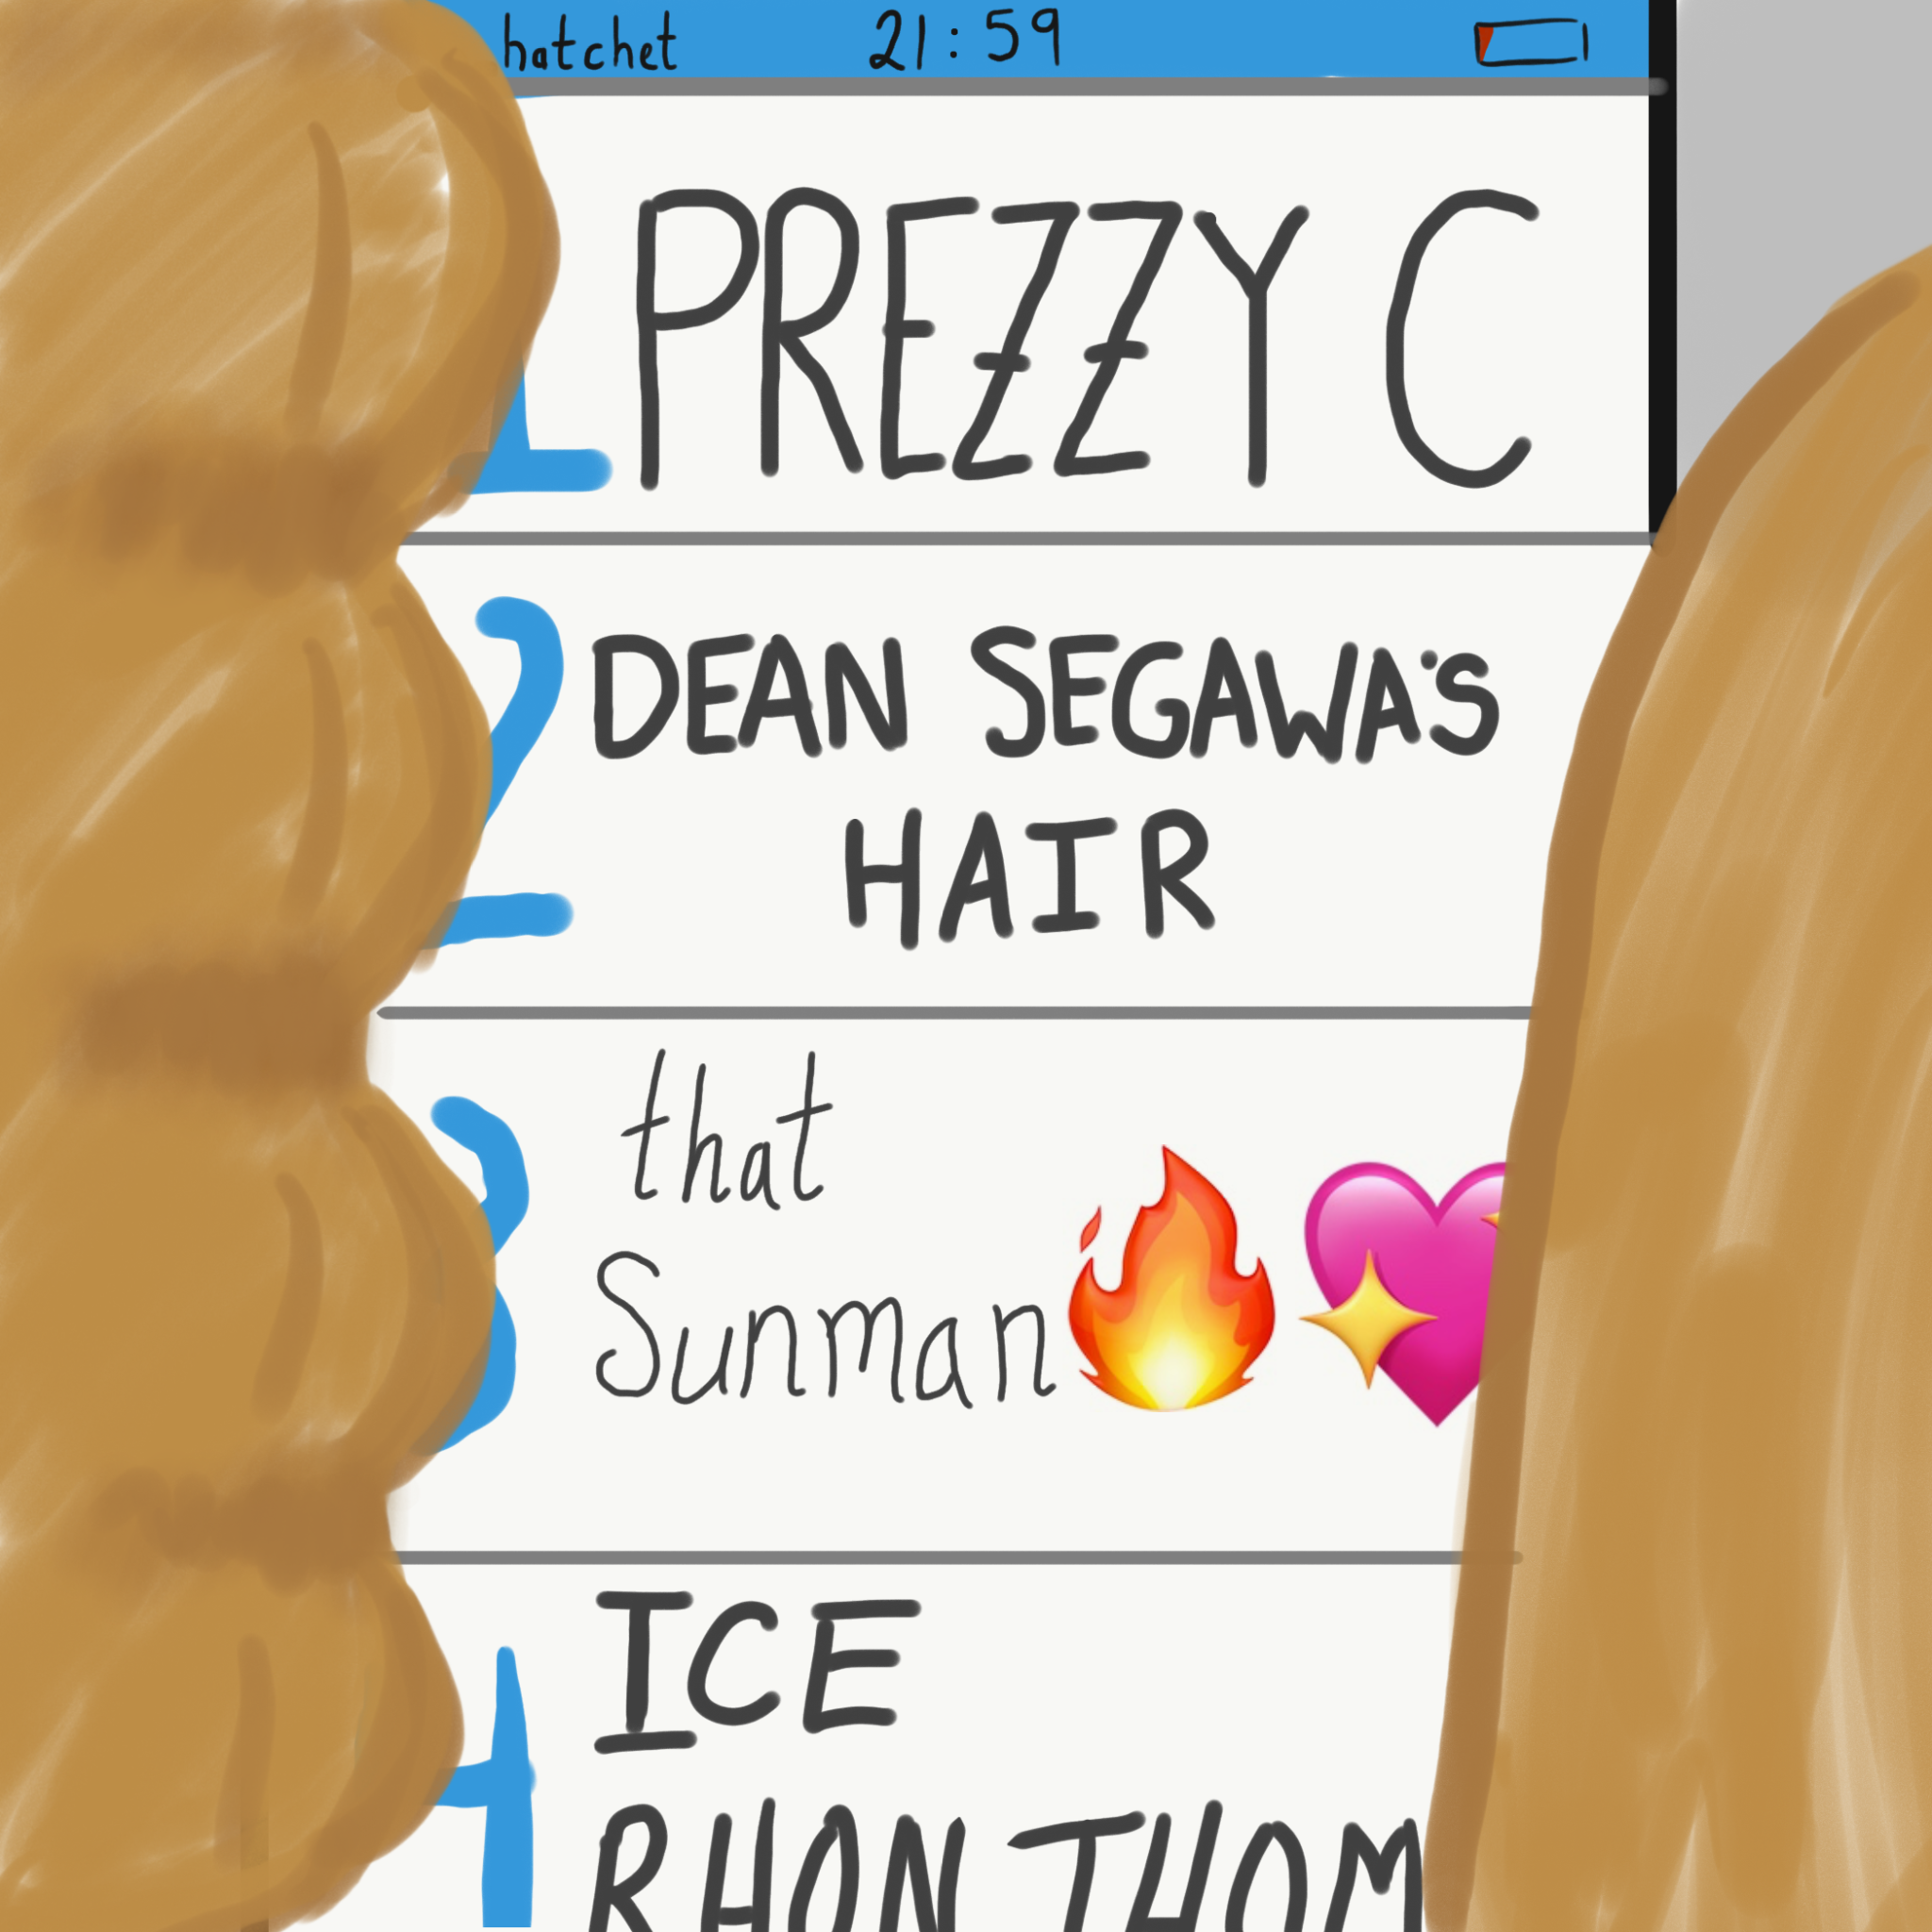 hatchet 21:59
1 PREZZY C
2 DEAN SEGAWA'S
HAIR
3 that
Sunman🔥💖
4 ICE
RHON THOM